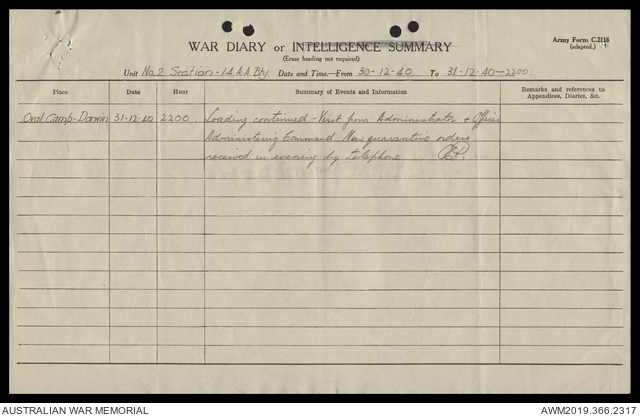 Army Form C.2118
(adapted.)
WAR DIARY or INTELLIGENCE SUMMARY
(Erase heading not required)
Unit No 2 Section - 1 A A Bty. Date and Time.—From 30-12-40 To 31-12-40—2200.
Place Date Hour Summary of Events and Information Remarks and references to Appendices, Diaries, &c.
Oval Camp-Darwin 31-12-40 2200 Loading continued - Visit from Administrator + Officer
Administering Command New quarantine orders
received in evening by telephone
AUSTRALIAN WAR MEMORIAL AWM2019.366.2317